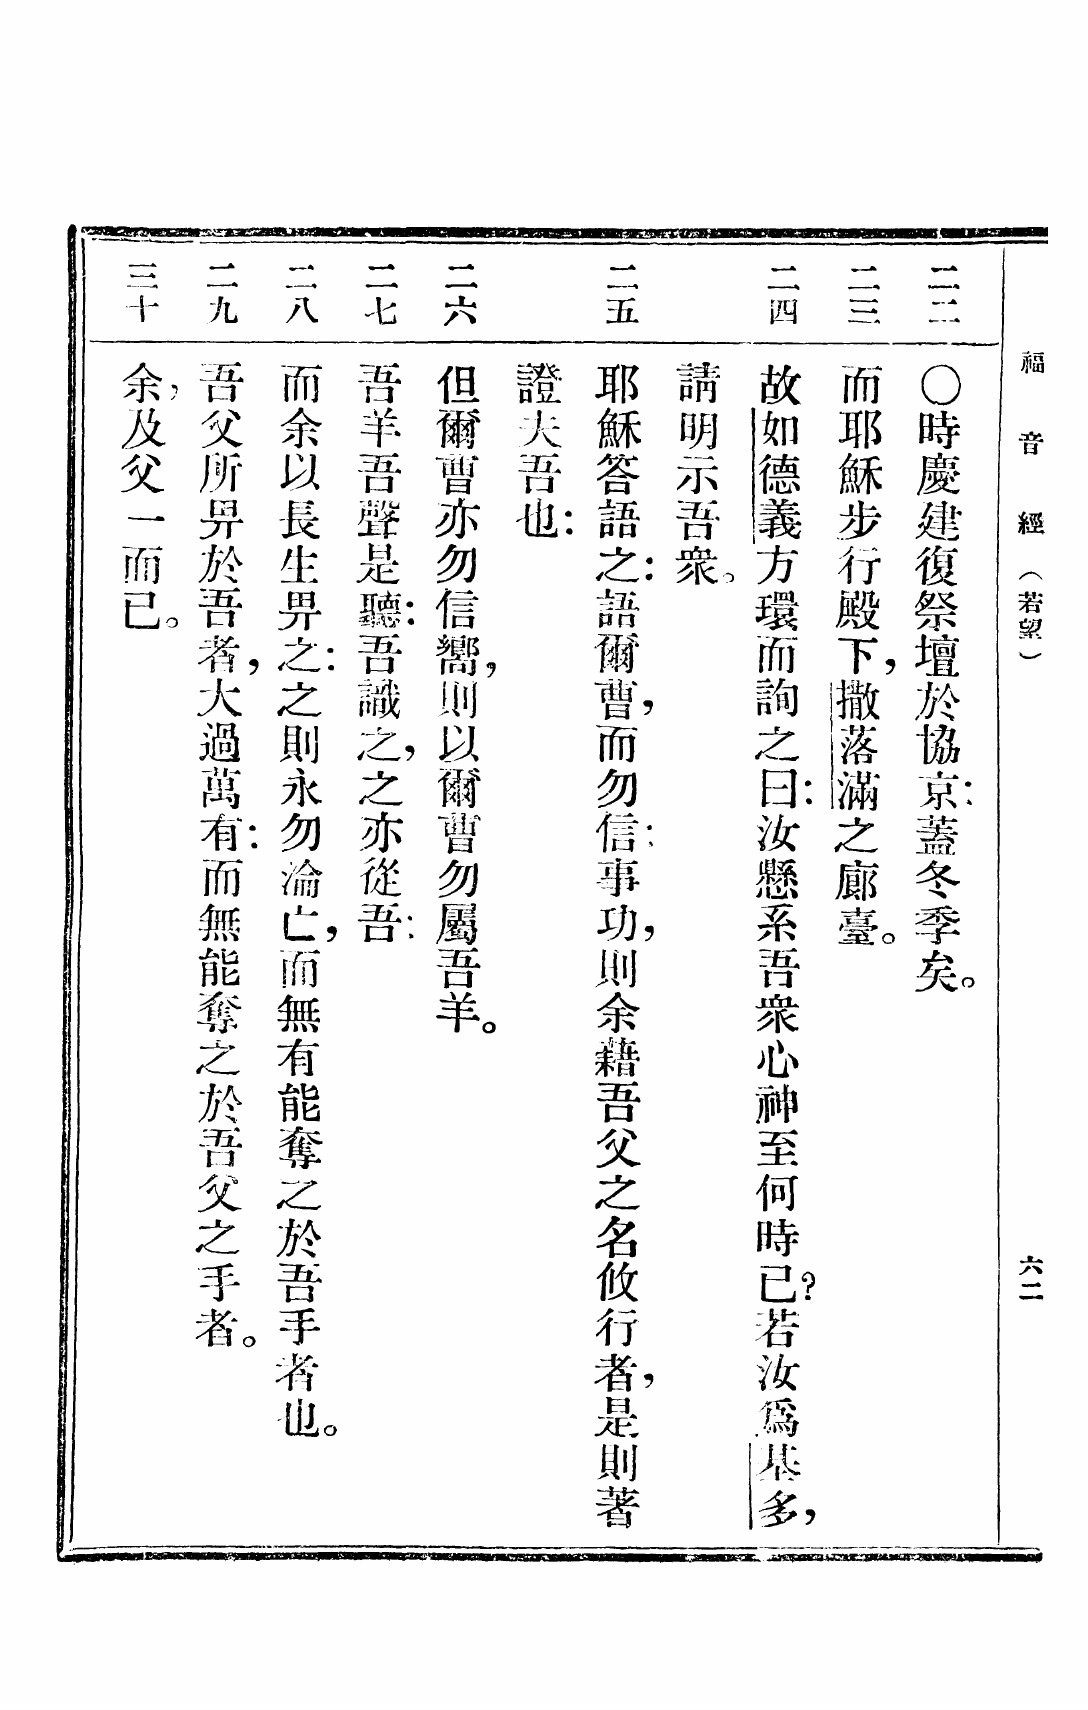 福音經（若望） 六二
二二 〇時慶建復祭壇於協京：蓋冬季矣。
二三 而耶穌步行殿下，撒落滿之廊臺。
二四 故如德義方環而詢之曰：汝懸系吾衆心神至何時已？若汝爲基多，
請明示吾衆。
二五 耶穌答語之：語爾曹，而勿信；事功，則余藉吾父之名攸行者，是則著
證夫吾也：
二六 但爾曹亦勿信嚮，則以爾曹勿屬吾羊。
二七 吾羊吾聲是聽：吾識之，之亦從吾：
二八 而余以長生畀之：之則永勿淪亡，而無有能奪之於吾手者也。
二九 吾父所畀於吾者，大過萬有：而無能奪之於吾父之手者。
三十 余，及父一而已。